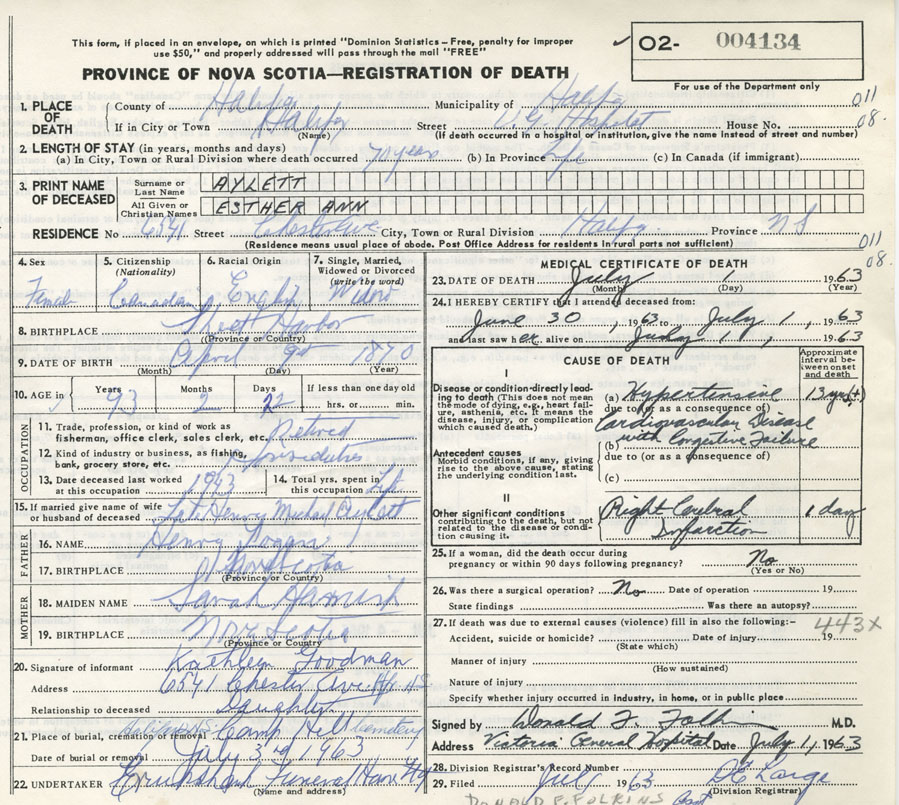 This form, if placed in an envelope, on which is printed "Dominion Statistics – Free, penalty for improper
use $50," and properly addressed will pass through the mail "FREE"
✓ O2- 004134
PROVINCE OF NOVA SCOTIA—REGISTRATION OF DEATH
For use of the Department only
1. PLACE OF DEATH { County of Halifax Municipality of Halifax 011
If in City or Town Halifax (Name) Street V.G. Hospital House No. 08.
(If death occurred in a hospital or institution, give the name instead of street and number)
2. LENGTH OF STAY (in years, months and days)
(a) In City, Town or Rural Division where death occurred 70 years (b) In Province Life (c) In Canada (if immigrant)
3. PRINT NAME OF DECEASED Surname or Last Name AYLETT
All Given or Christian Names ESTHER ANN
RESIDENCE No 6541 Street Chester Ave City, Town or Rural Division Halifax Province N S
(Residence means usual place of abode. Post Office Address for residents in rural parts not sufficient)
011
08.
4. Sex Female
5. Citizenship (Nationality) Canadian
6. Racial Origin English
7. Single, Married, Widowed or Divorced (write the word) Widow
8. BIRTHPLACE Harbor
(Province or Country)
9. DATE OF BIRTH April 9th 1870
(Month) (Day) (Year)
10. AGE in Years 93 Months 2 Days 22 If less than one day old hrs. or min.
OCCUPATION
11. Trade, profession, or kind of work as fisherman, office clerk, sales clerk, etc. Retired
12. Kind of industry or business, as fishing, bank, grocery store, etc.
13. Date deceased last worked at this occupation 1943
14. Total yrs. spent in this occupation Life
15. If married give name of wife or husband of deceased Late Henry Michael Aylett
FATHER
16. NAME Henry Logan
17. BIRTHPLACE Nova Scotia
(Province or Country)
MOTHER
18. MAIDEN NAME Sarah Hamish
19. BIRTHPLACE Nova Scotia
(Province or Country)
20. Signature of informant Kathleen Goodman
Address 6541 Chester Ave Hfx NS
Relationship to deceased Daughter
21. Place of burial, cremation or removal Camp Hill Cemetery
Date of burial or removal July 3rd 1963
22. UNDERTAKER Cruikshank Funeral Home Hfx
(Name and address)
MEDICAL CERTIFICATE OF DEATH
23. DATE OF DEATH July 1 1963
(Month) (Day) (Year)
24. I HEREBY CERTIFY that I attended deceased from:
June 30, 1963 to July 1, 1963
and last saw her alive on July 1, 1963
CAUSE OF DEATH
Approximate interval between onset and death
I
Disease or condition directly leading to death (This does not mean the mode of dying, e.g., heart failure, asthenia, etc. It means the disease, injury, or complication which caused death.)
(a) Hypertensive 13 yrs (+)
due to (or as a consequence of)
Cardiovascular Disease
(b) with Congestive Failure
due to (or as a consequence of)
(c)
Antecedent causes
Morbid conditions, if any, giving rise to the above cause, stating the underlying condition last.
II
Other significant conditions contributing to the death, but not related to the disease or condition causing it.
Right Cerebral 1 day
Infarction
25. If a woman, did the death occur during pregnancy or within 90 days following pregnancy? No
(Yes or No)
26. Was there a surgical operation? No Date of operation 19
State findings Was there an autopsy?
27. If death was due to external causes (violence) fill in also the following:– 443X
Accident, suicide or homicide? Date of injury 19
(State which)
Manner of injury
(How sustained)
Nature of injury
Specify whether injury occurred in industry, in home, or in public place
Signed by Donald F. Folkins M.D.
Address Victoria General Hospital Date July 1, 1963
28. Division Registrar's Record Number
29. Filed July 1963
(Division Registrar)
DONALD F. FOLKINS